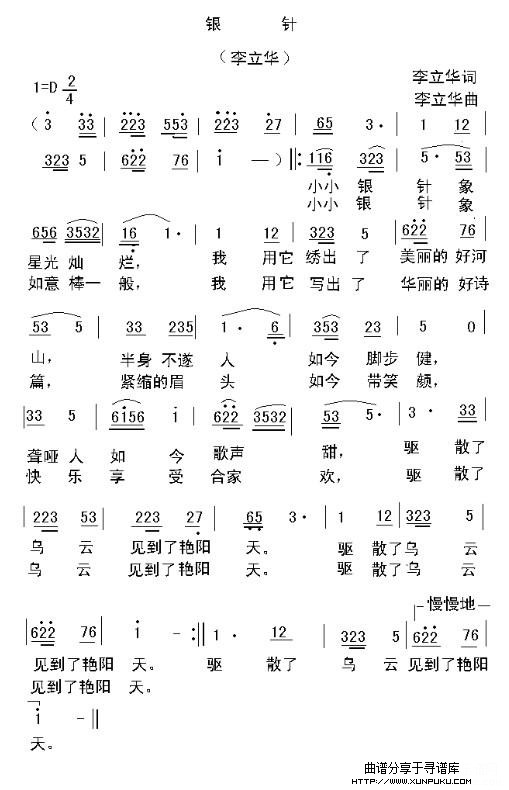 银 针
（李立华）
1=D 2/4
李立华词
李立华曲
（3 33 | 223 553 | 223 27 | 65 3· | 1 12 |
323 5 | 622 76 | i —）‖: 116 323 | 5· 53 |
小小 银 针 象
小小 银 针 象
656 3532 | 16 1· | 1 12 | 323 5 | 622 76 |
星光 灿 烂， 我 用它 绣出 了 美丽的 好河
如意 棒一 般， 我 用它 写出 了 华丽的 好诗
53 5 | 33 235 | 1· 6 | 353 23 | 5 0 |
山， 半身 不遂 人 如今 脚步 健，
篇， 紧缩的眉 头 如今 带笑 颜，
33 5 | 6156 i | 622 3532 | 53 5· | 3· 33 |
聋哑 人 如 今 歌声 甜， 驱 散了
快乐 享 受 合家 欢， 驱 散了
223 53 | 223 27 | 65 3· | 1 12 | 323 5 |
乌 云 见到了艳阳 天。 驱 散了乌 云
乌 云 见到了艳阳 天。 驱 散了乌 云
慢慢地
622 76 | i - :‖ 1· 12 | 323 5 | 622 76 |
见到了艳阳 天。 驱 散了 乌 云 见到了艳阳
见到了艳阳 天。
i - ‖
天。
曲谱分享于寻谱库
HTTP://WWW.XUNPUKU.COM